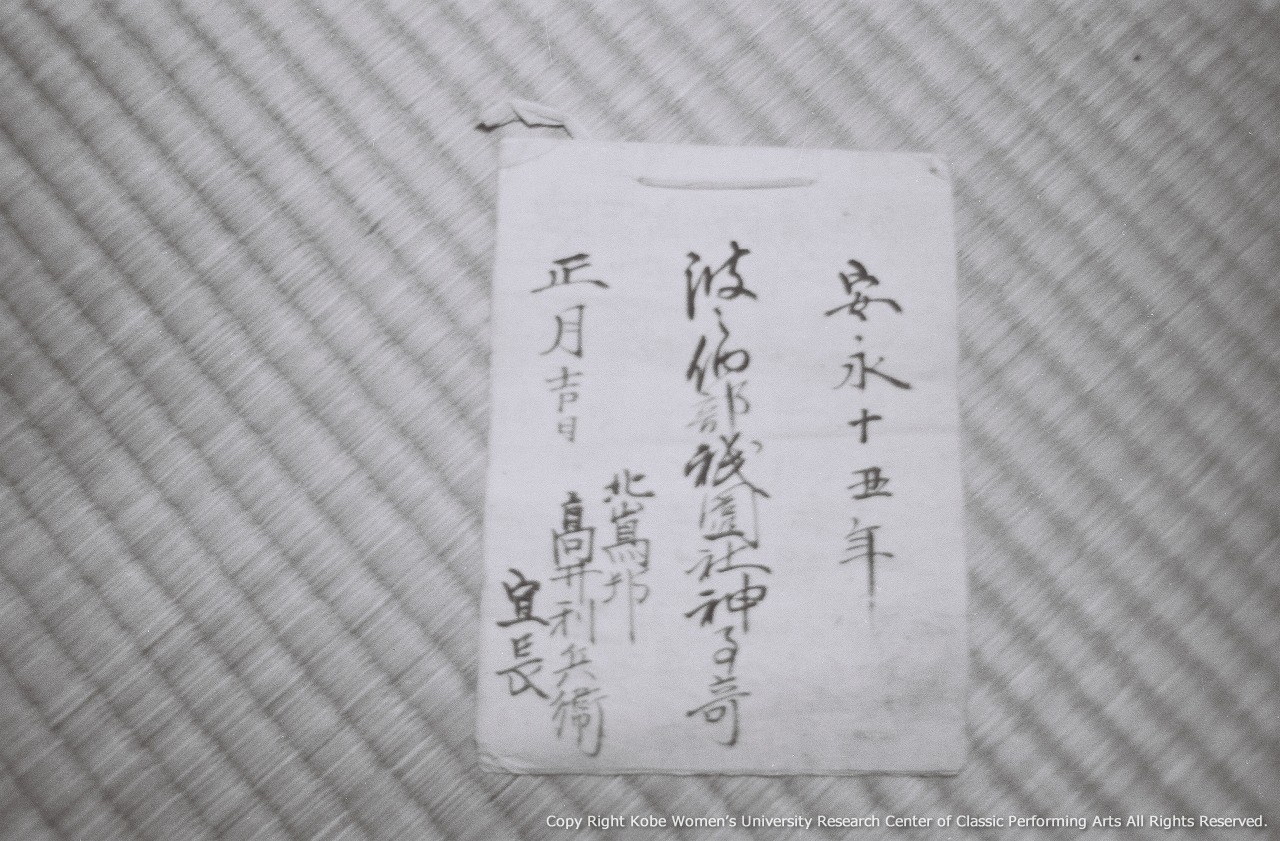 安永十丑年
波々伯部祇園社神子哥
正月吉日
北嶌邦
髙井利兵衛
宜長
Copy Right Kobe Women's University Research Center of Classic Performing Arts All Rights Reserved.